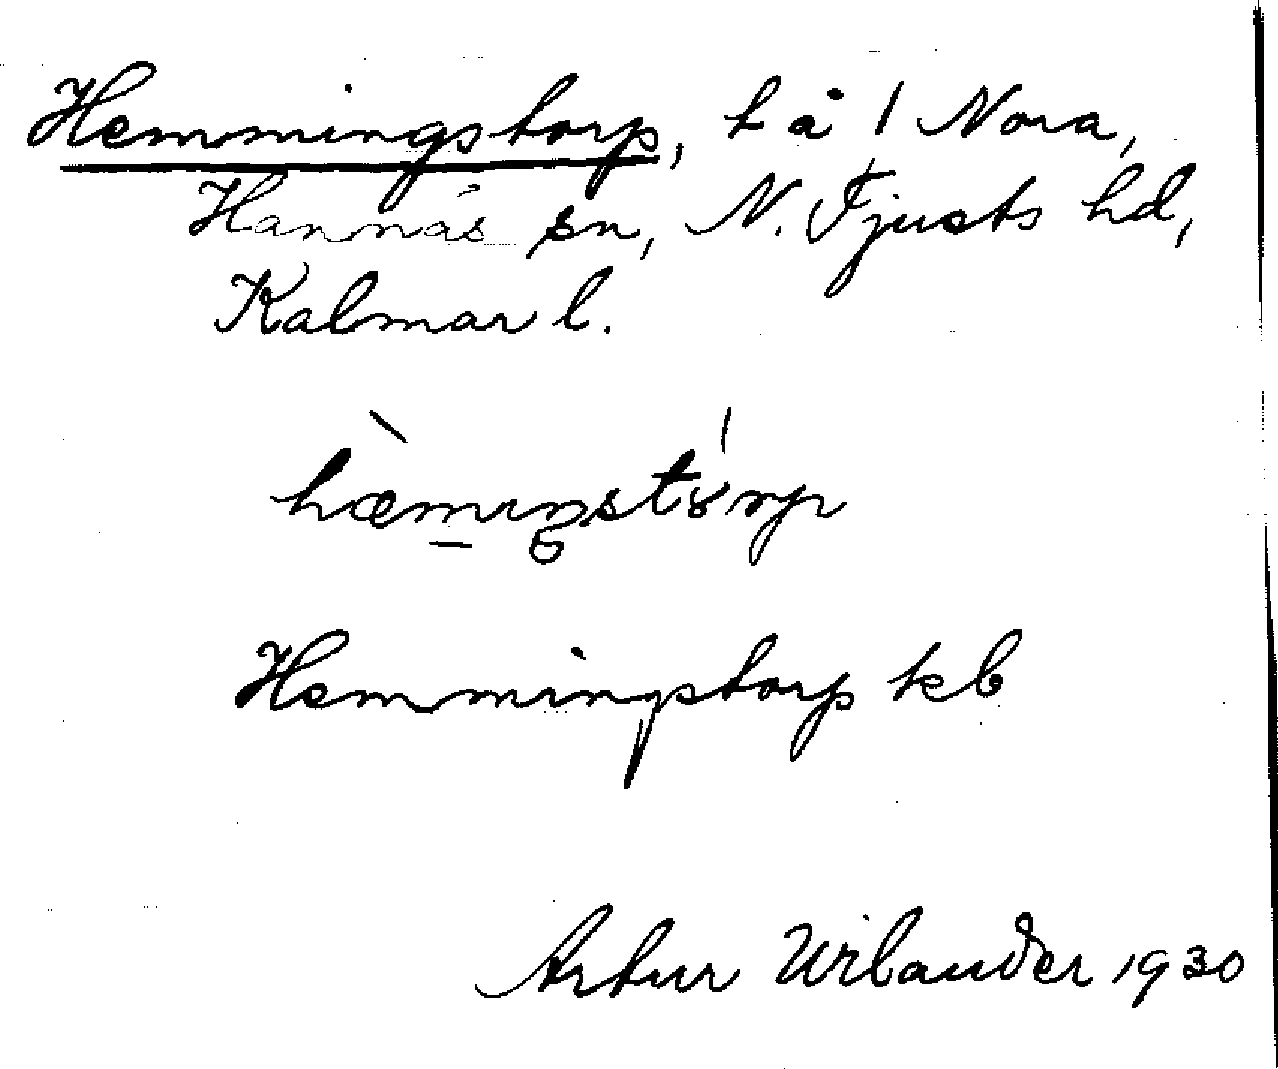 Hemmingstorp, t å 1 Nora,
Hannäs sn, N. Tjusts hd,
Kalmar l.
Hemmingstorp kb
Artur Wilander 1930